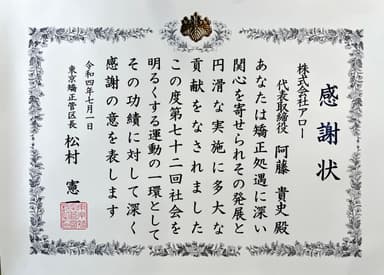 感謝状
株式会社アロー
代表取締役 阿藤 貴史 殿
あなたは矯正処遇に深い
関心を寄せられその発展と
円滑な実施に多大な
貢献をなされました
この度第七十二回社会を
明るくする運動の一環として
その功績に対して深く
感謝の意を表します
令和四年七月一日
東京矯正管区長 松村 憲一